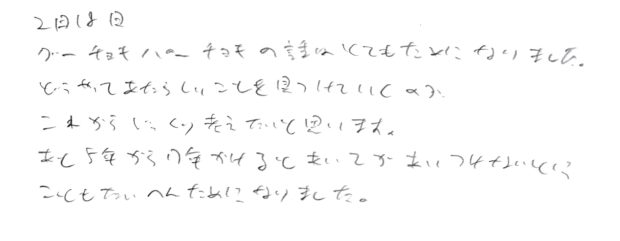 2日18日
グーチョキパーチョキの話はとてもためになりました。
どうやってあたらしいことを見つけていくのか
これからじっくり考えたいと思います。
あと5年から7年かけるとあいてがおいつけないという
こともたいへんためになりました。